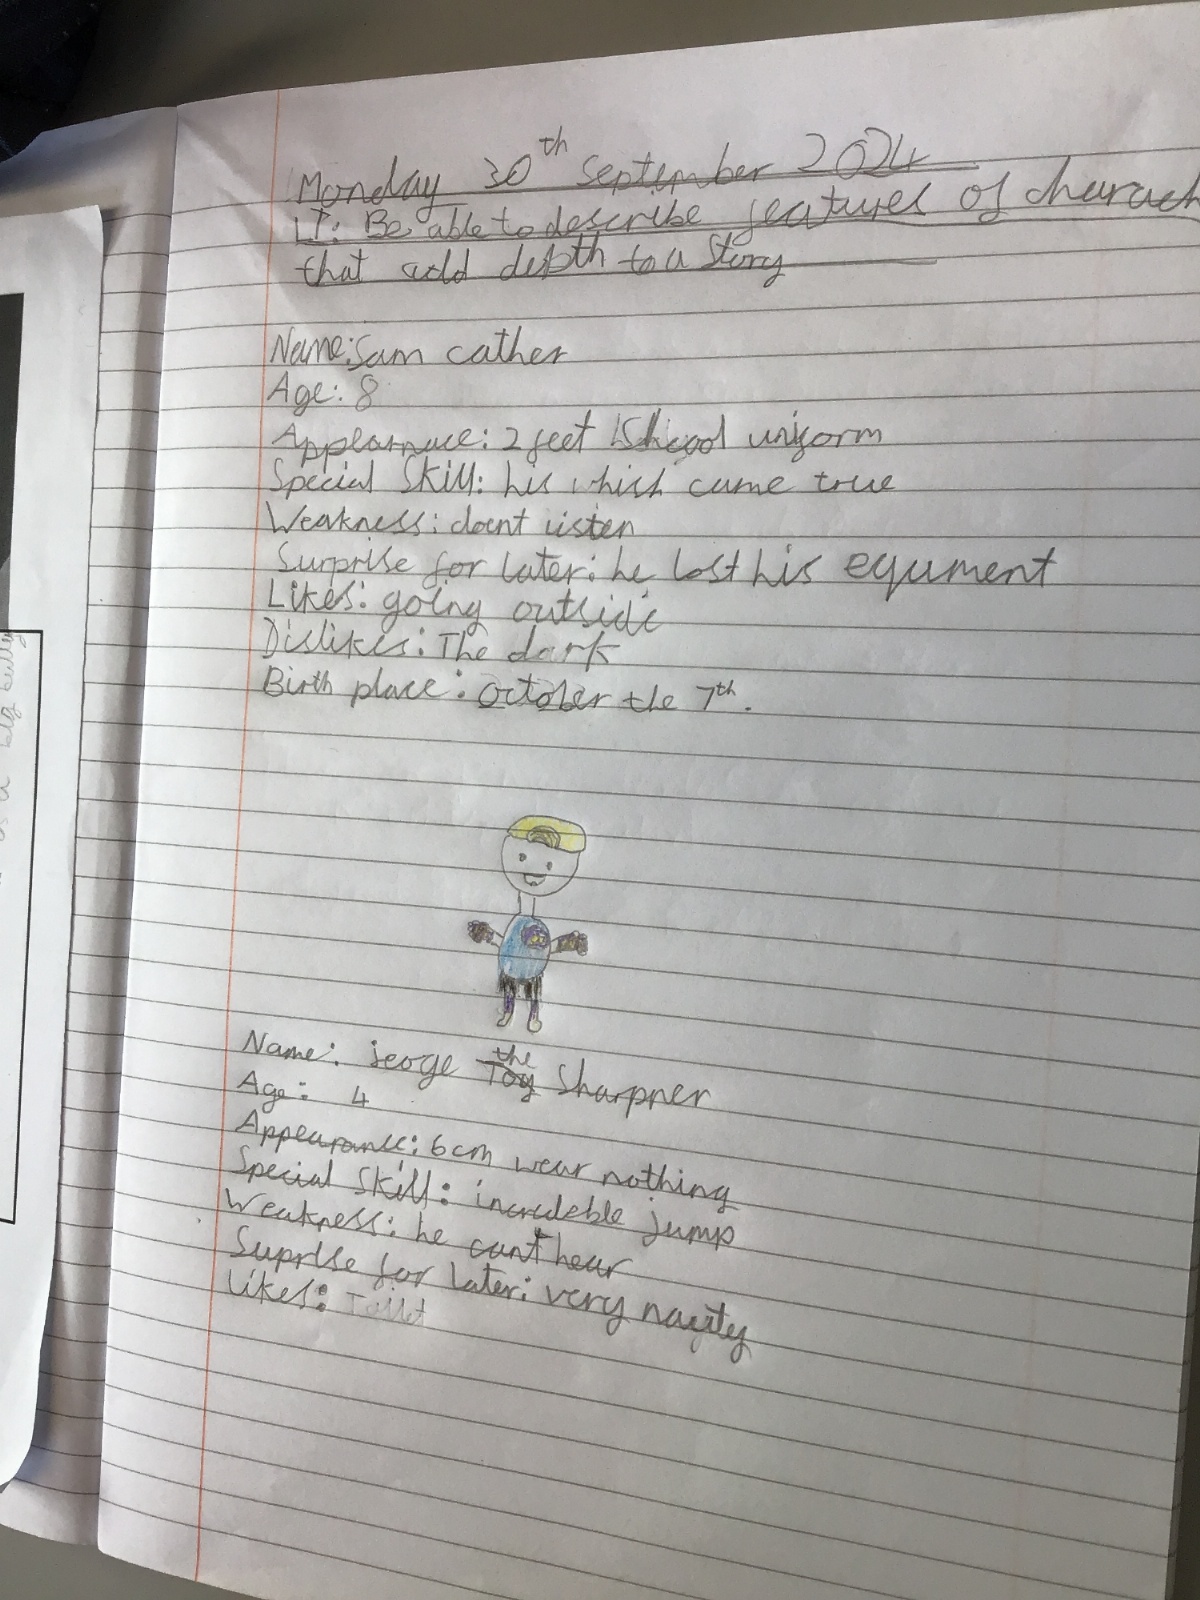 Monday 30th September 2024
LI: Be able to describe features of charach
that add depth to a Story
Name: Sam cather
Age: 8
Applarnuce: 2 feet Shcool uniform
Special Skill: his which came true
Weakness: doent listen
Surprise for later: he lost his equment
Likes: going outside
Dislikes: The dark
Birth place: october the 7th.
Name: jeoge the Toy Sharpner
Age: 4
Appearance: 6cm wear nothing
Special Skill: incredeble jump
Weakness: he cant hear
Suprise for later: very nayity
Likes: Toilet